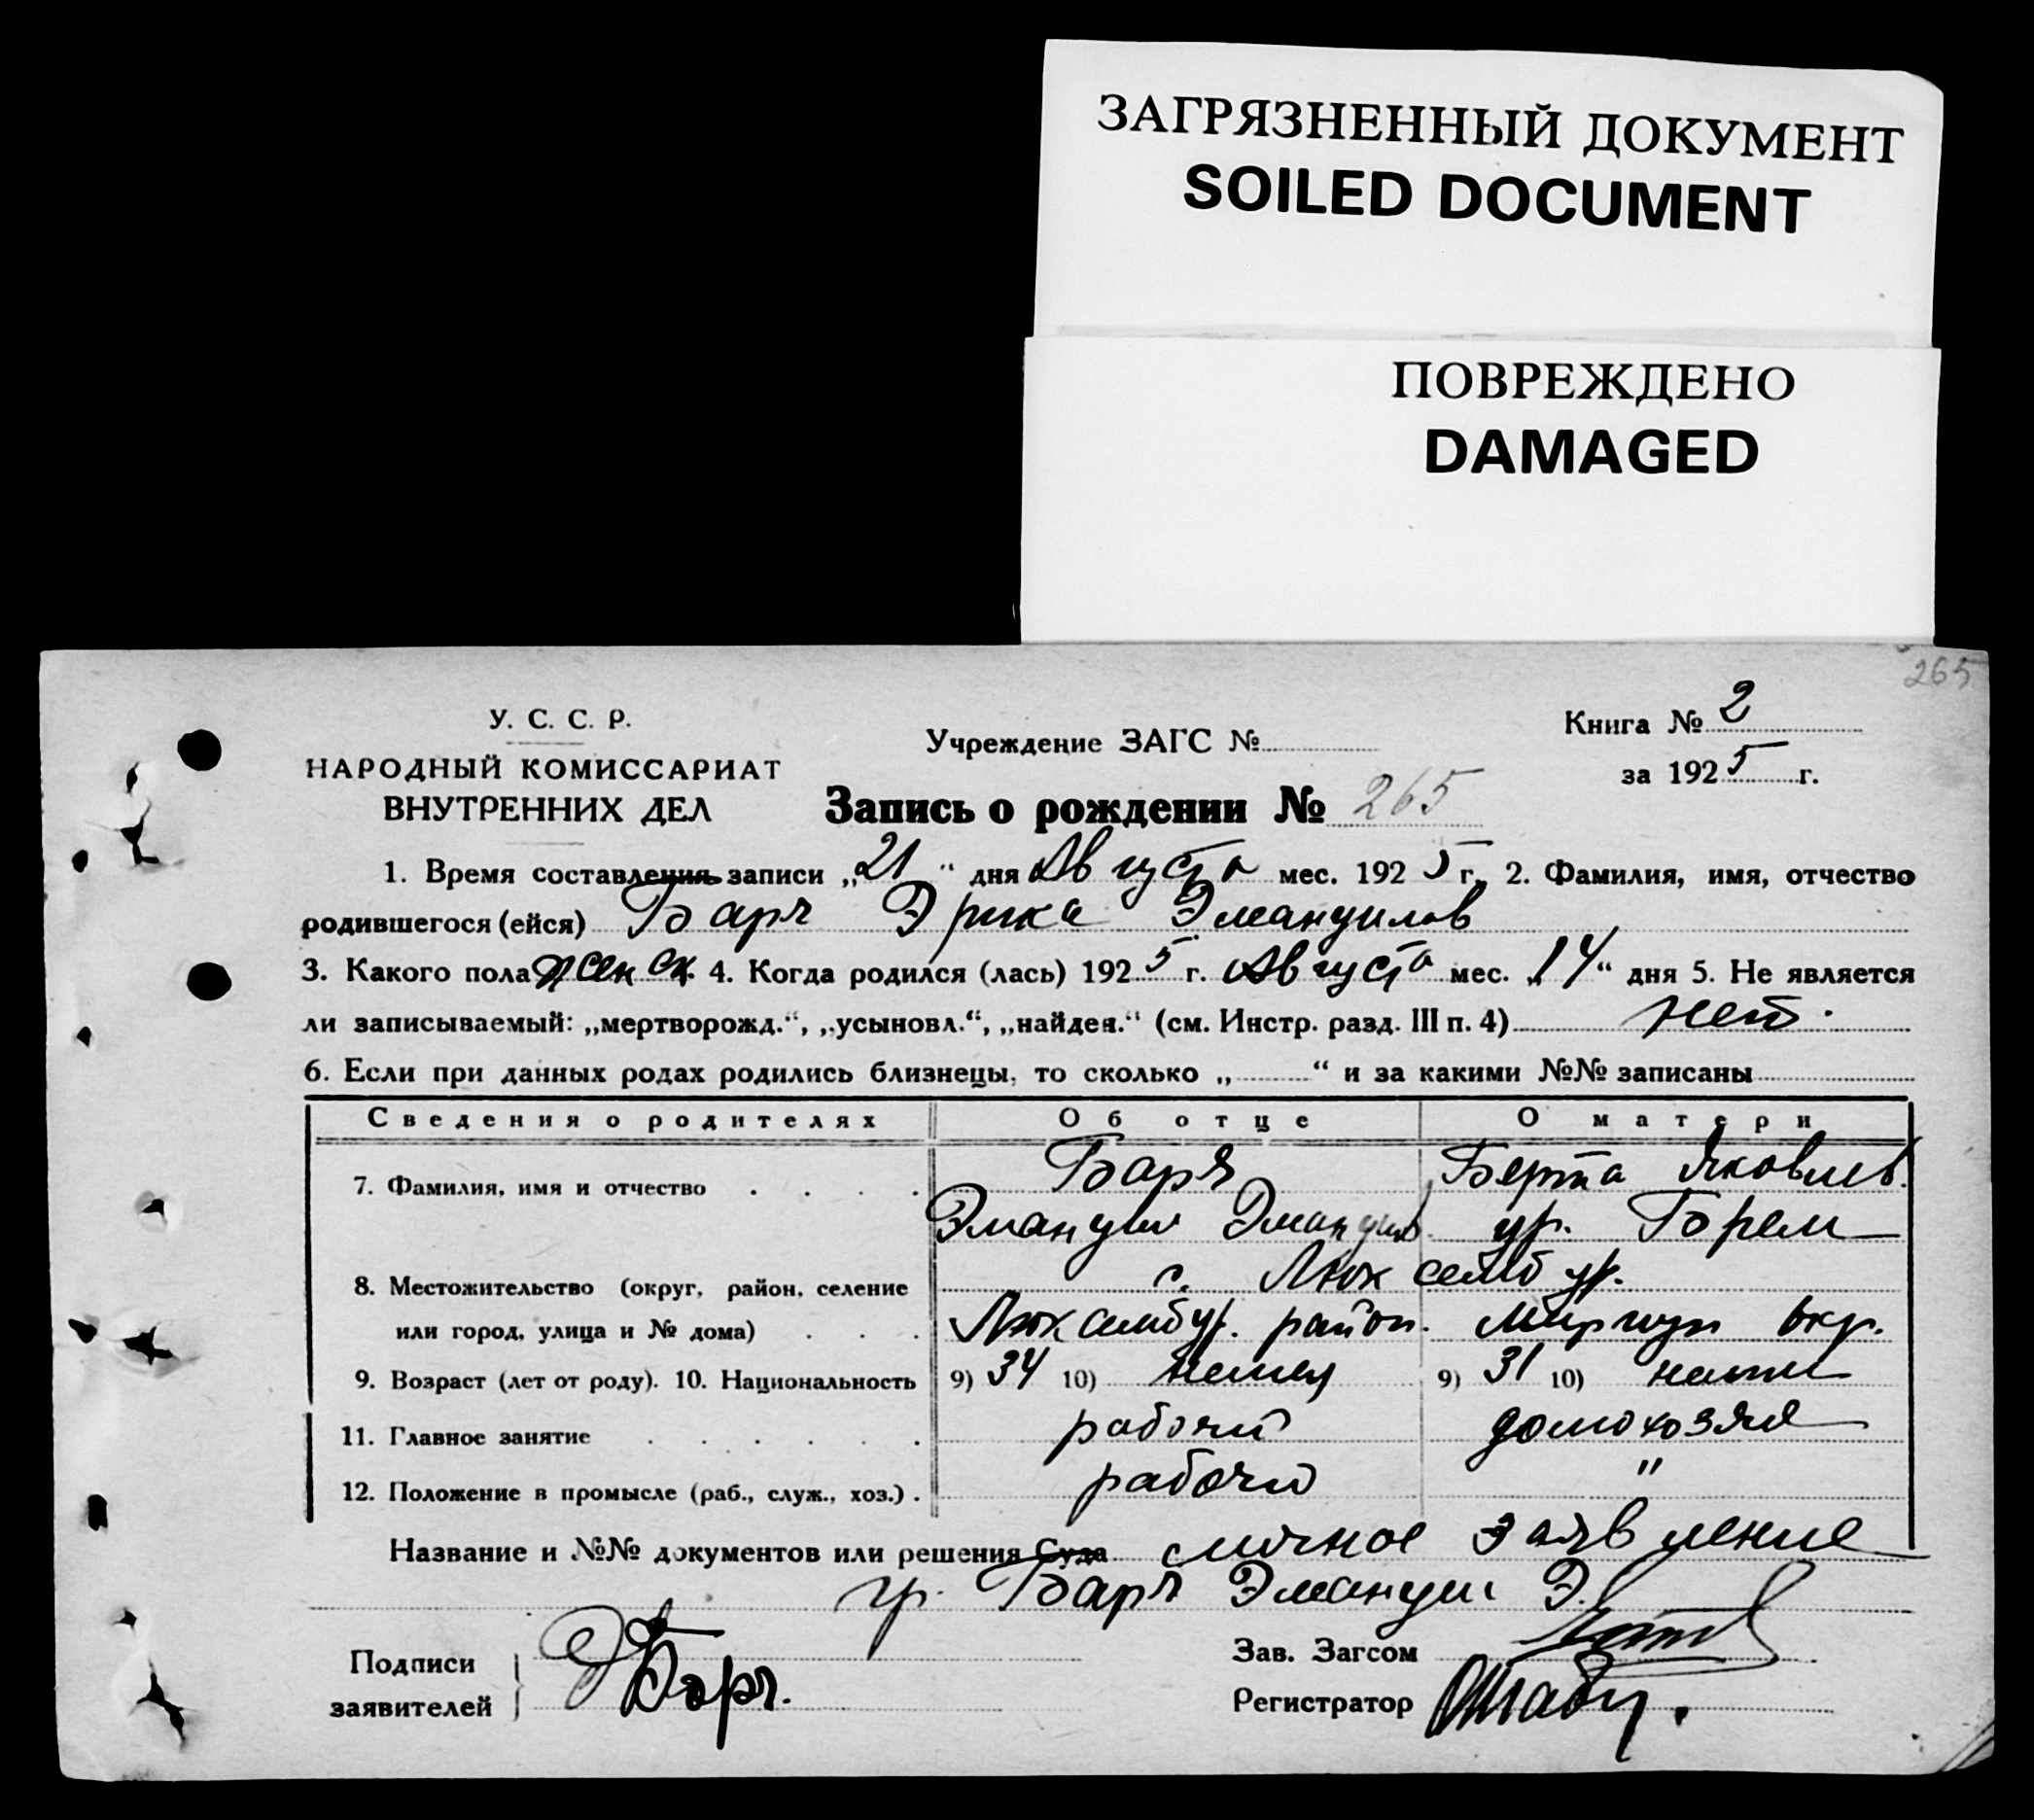 ЗАГРЯЗНЕННЫЙ ДОКУМЕНТ
SOILED DOCUMENT
ПОВРЕЖДЕНО
DAMAGED
265
У. С. С. Р.
НАРОДНЫЙ КОМИССАРИАТ
ВНУТРЕННИХ ДЕЛ
Учреждение ЗАГС №
Книга № 2
за 1925 г.
Запись о рождении № 265
1. Время составления записи „21“ дня Августа мес. 1925 г. 2. Фамилия, имя, отчество
родившегося (ейся) Барч Эрика Эмануилов
3. Какого пола женск 4. Когда родился (лась) 1925 г. Августа мес. „14“ дня 5. Не является
ли записываемый: „мертворожд.“, „усыновл.“, „найден.“ (см. Инстр. разд. III п. 4) нет.
6. Если при данных родах родились близнецы, то сколько „ “ и за какими №№ записаны
Сведения о родителях Об отце О матери
7. Фамилия, имя и отчество Барч Берта Яковлев.
Эмануил Эмануилов. ур. Борем
8. Местожительство (округ, район, селение с. Люксембург.
или город, улица и № дома) Люксембург. район. окр.
9. Возраст (лет от роду). 10. Национальность 9) 34 10) немец 9) 31 10) немк
11. Главное занятие рабочий домохозяй
12. Положение в промысле (раб., служ., хоз.) рабочий "
Название и №№ документов или решения Суда личное заявление
гр. Барч Эмануил Э.
Подписи
заявителей Э Барч.
Зав. Загсом
Регистратор